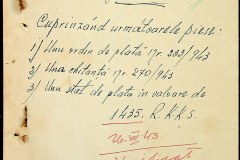 Cuprinzând urmatoarele piese:
1) Unu ordin de plată Nr. 233/943
2) Una chitanță Nr. 270/943
3) Unu stat de plata în valoare de
1435. R.K.K.S.
26. VII 43